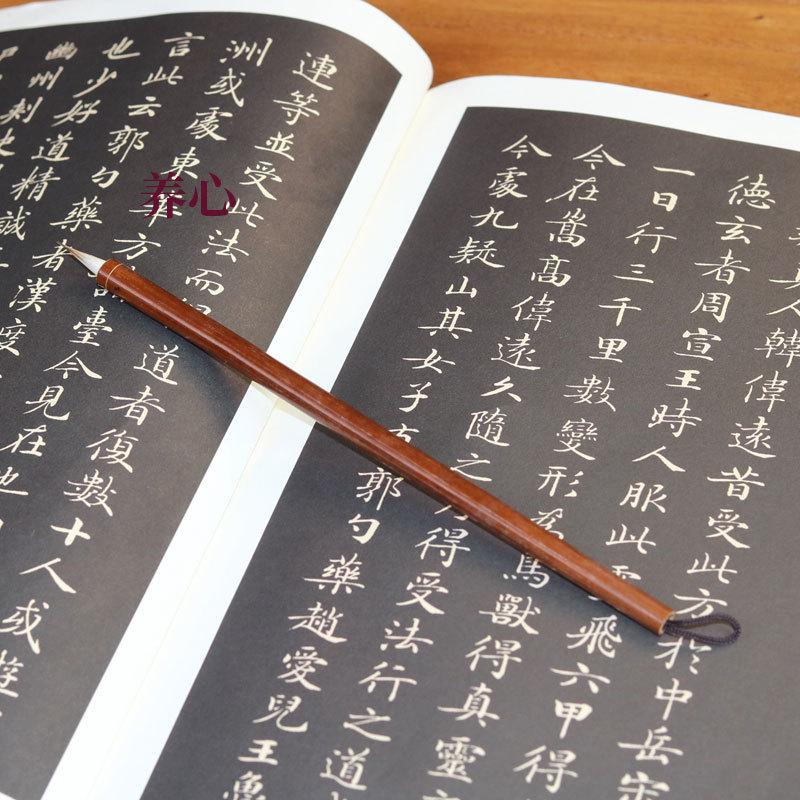 真人韓偉遠昔受此方於中岳宋
德玄者周宣王時人服此靈飛六甲得
一日行三千里數變形為鳥獸得真靈
今在嵩高偉遠久隨之乃得受法行之道
今處九疑山其女子有郭勺藥趙愛兒王魯
連等並受此法而得道者復數十人或遊
洲或處東華方諸臺今見在也
言此云郭勺藥者漢度
也少好道精誠
幽州刺史
养心